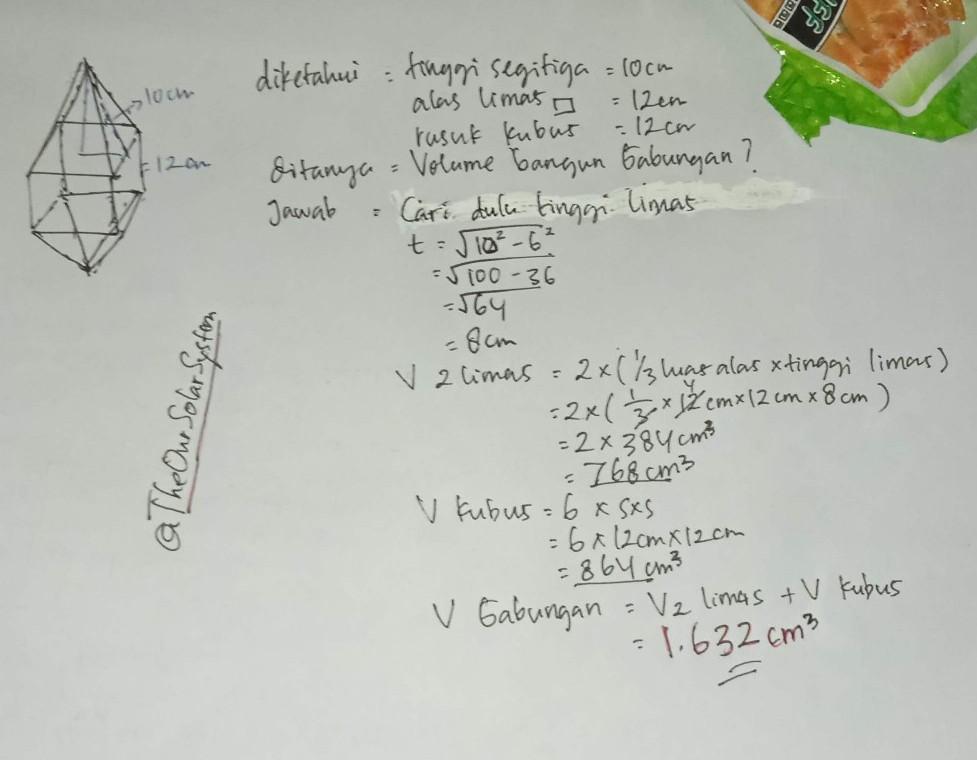 diketahui = tinggi segitiga = 10cm
alas limas □ = 12cm
rusuk kubus = 12cm
Ditanya = Volume bangun Gabungan?
Jawab = Cari dulu tinggi limas
t = √10² - 6²
= √100 - 36
= √64
= 8cm
V 2 limas = 2 × (1/3 luas alas × tinggi limas)
= 2 × (1/3 × 12 4 cm × 12 cm × 8 cm)
= 2 × 384 cm³
= 768 cm³
V kubus = 6 × s×s
= 6 × 12cm × 12cm
= 864 cm³
V Gabungan = V2 limas + V kubus
= 1.632 cm³
10cm
12cm
@TheOurSolarSystem